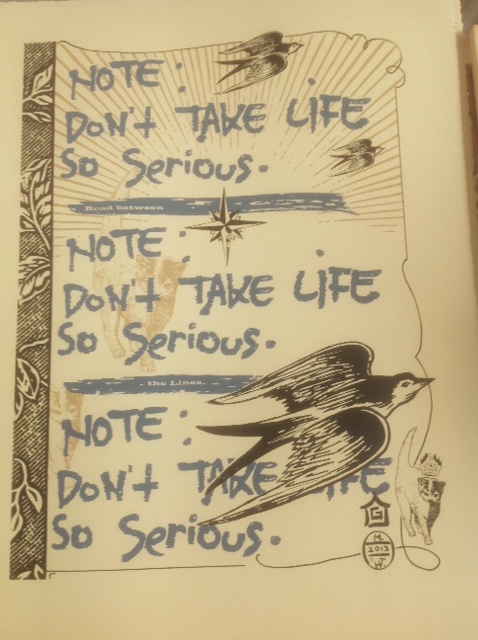 NOTE:
DON't TAKE LiFE
So Serious.
Read between
NOTE:
DON't TAKE LiFE
So Serious.
the Lines.
NOTE:
DON't TAKE LiFE
So Serious.
G
M.
2013
J.W.